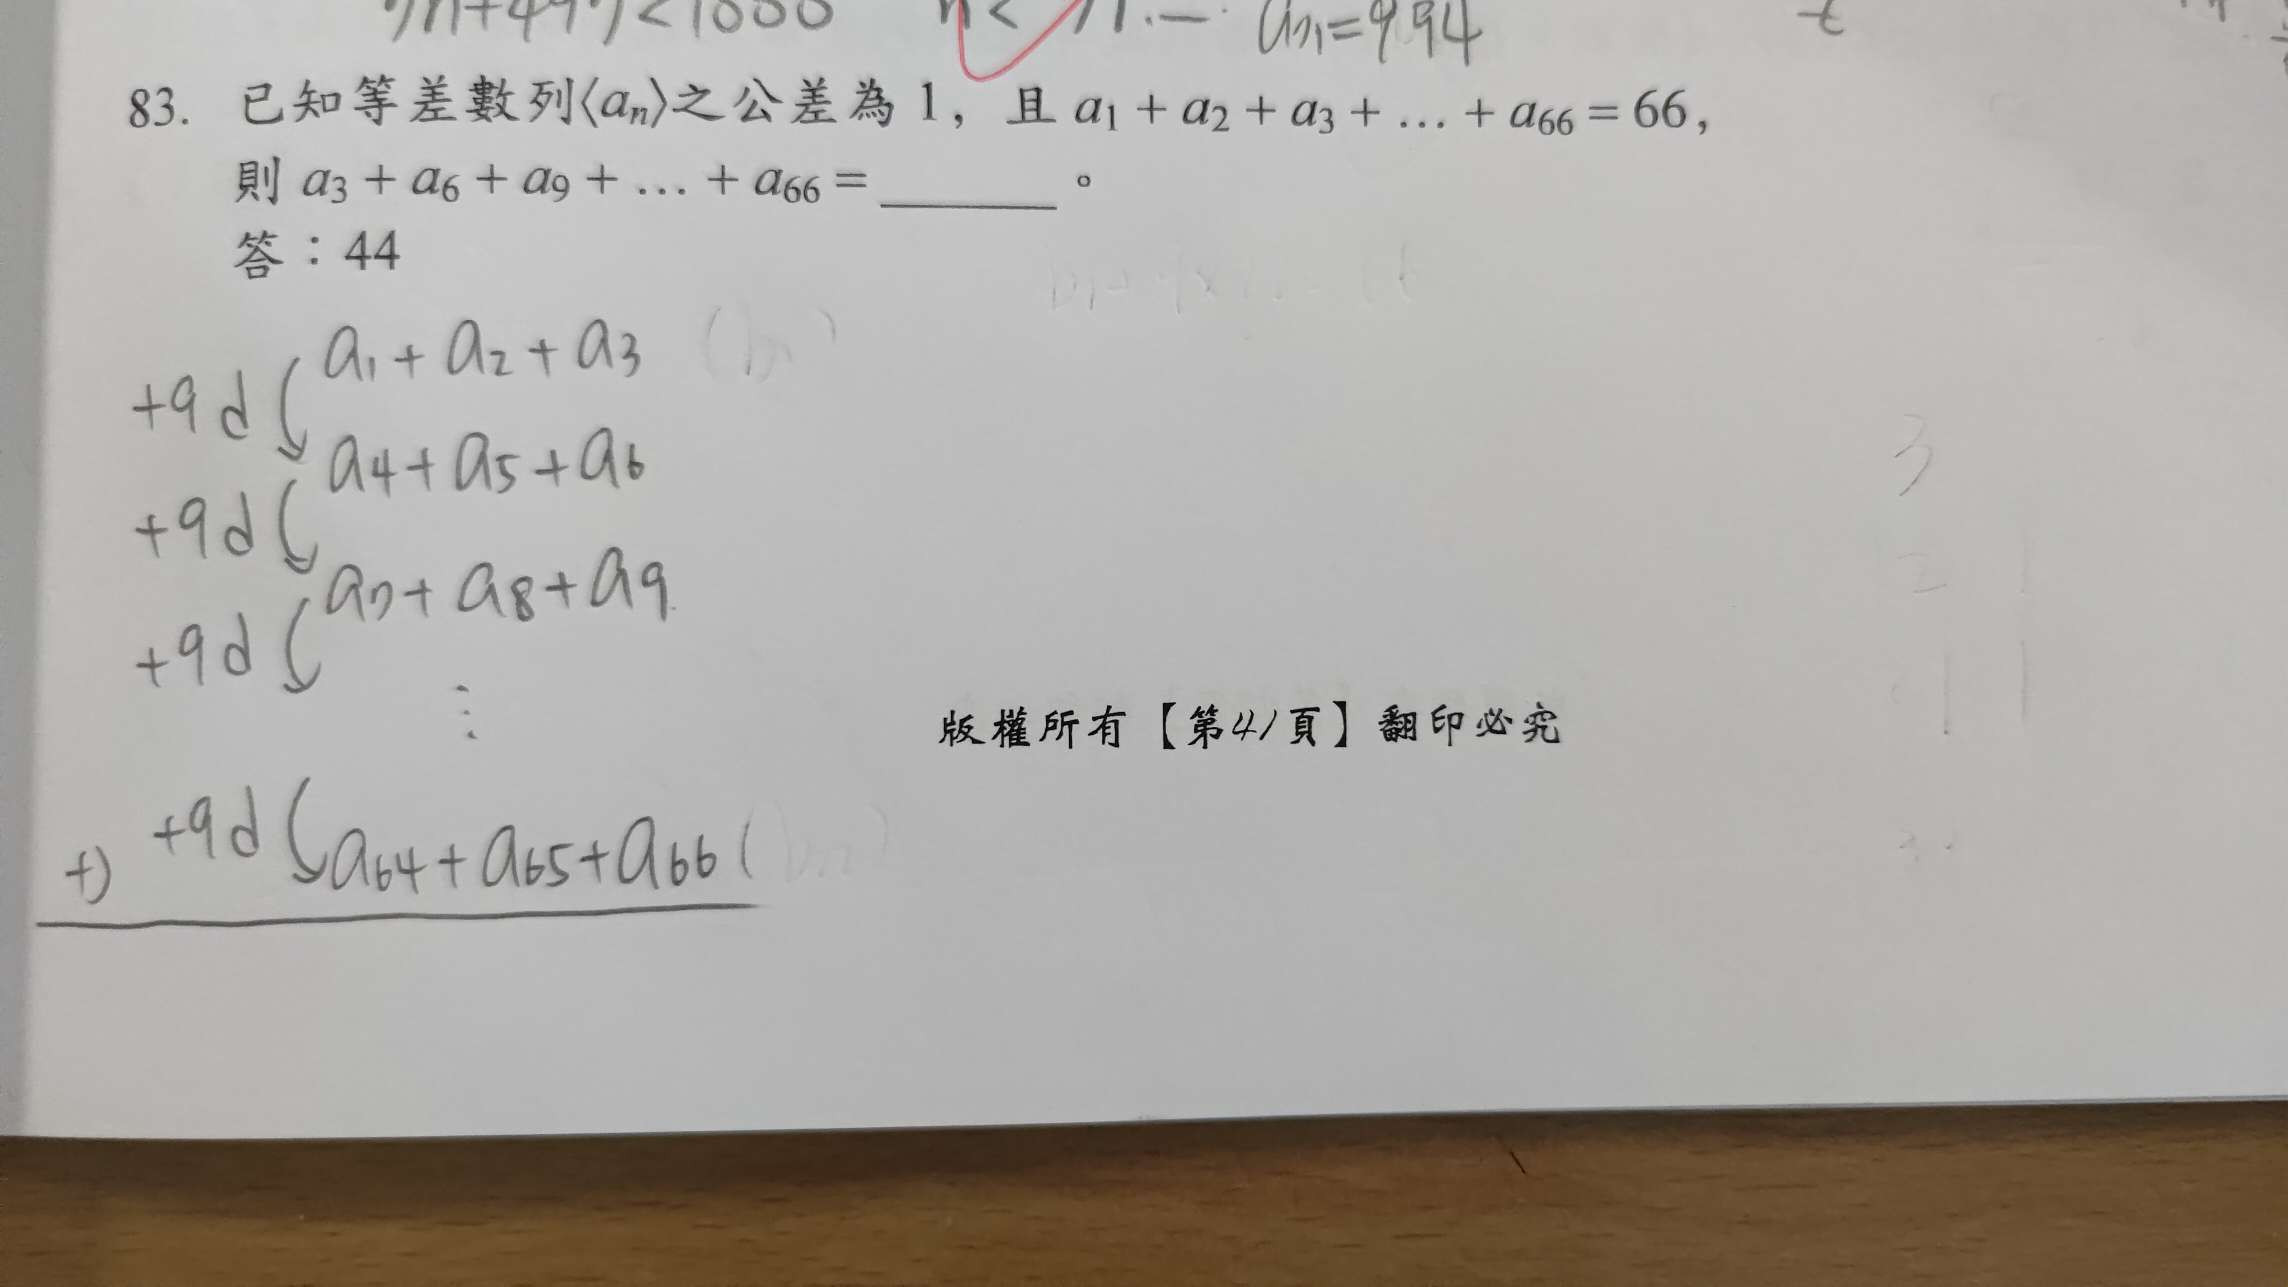 a₇₁=994
83. 已知等差數列⟨aₙ⟩之公差為 1，且 a₁ + a₂ + a₃ + … + a₆₆ = 66，
則 a₃ + a₆ + a₉ + … + a₆₆ = ______。
答：44
a₁ + a₂ + a₃
+9d
a₄ + a₅ + a₆
+9d
a₇ + a₈ + a₉
+9d
⋮
+9d
+) a₆₄ + a₆₅ + a₆₆
版權所有【第41頁】翻印必究